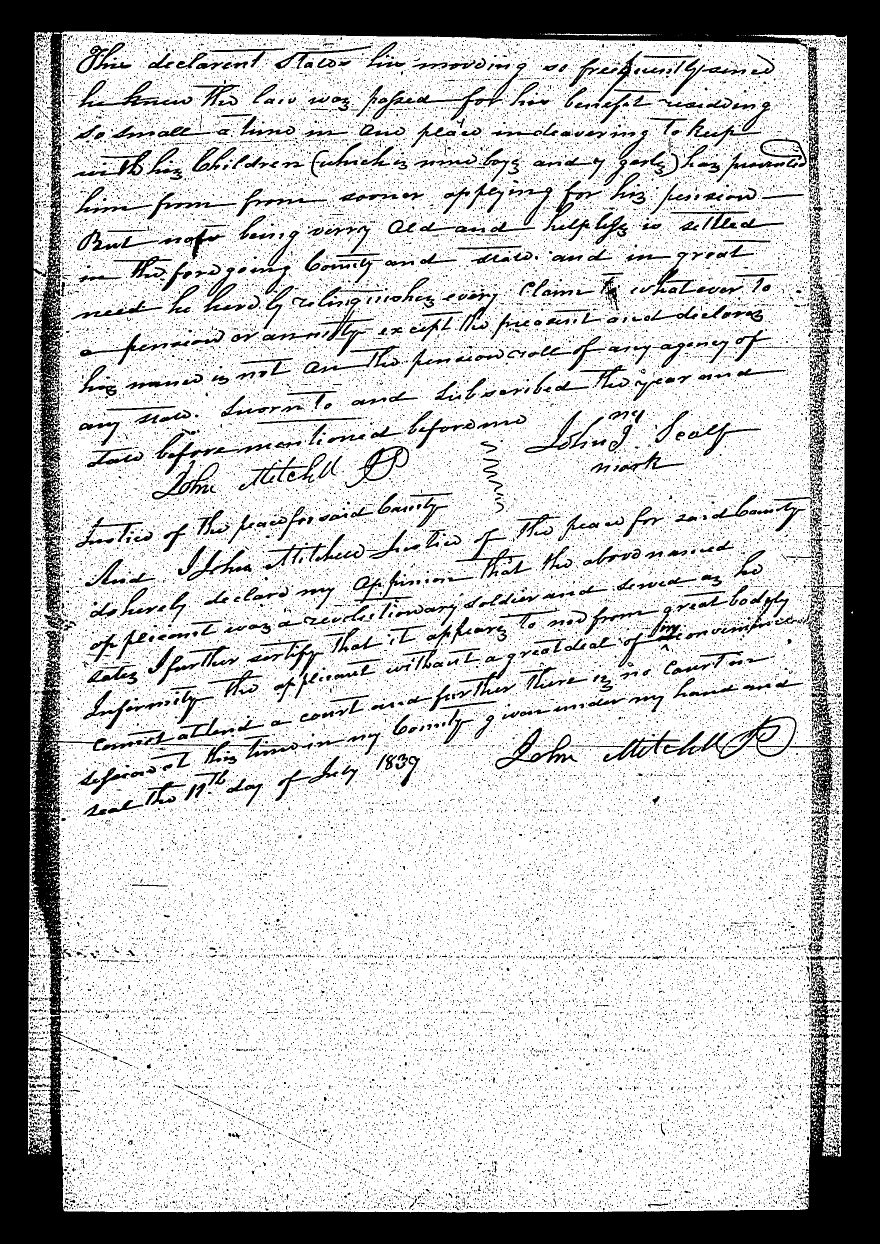 This declarent States his mooving so frequently sinced
he knew the law was passed for his benefit residing
so small a time in one place indeavering to keep
with his Children (which is nine boys and 7 garls) has prevented
him from from sooner applying for his pension
But now being verry old and helpless is settled
in the foregoing County and state. and in great
need he hereby relinquishes every Claime whatever to
a pension or annuity except the preasent and declares
his name is not on the pension roll of any agency of
any state. Sworn to and Subscribed the year and
date before mentioned before me
John Scalf
mark
John Mitchell JP
Justice of the peace for said County
And I John Mitchell Justice of the peace for said County
do herely declare my oppinion that the above named
opplicant was a revolutionary soldier and served as he
sates I further certify that it appears to me from great bodely
Infirmity the applicant without a great deal of inconvenience
connot attend a court and further there is no court in
session at this time in my County given under my hand and
seal the 17th day of July 1839
John Mitchell JP